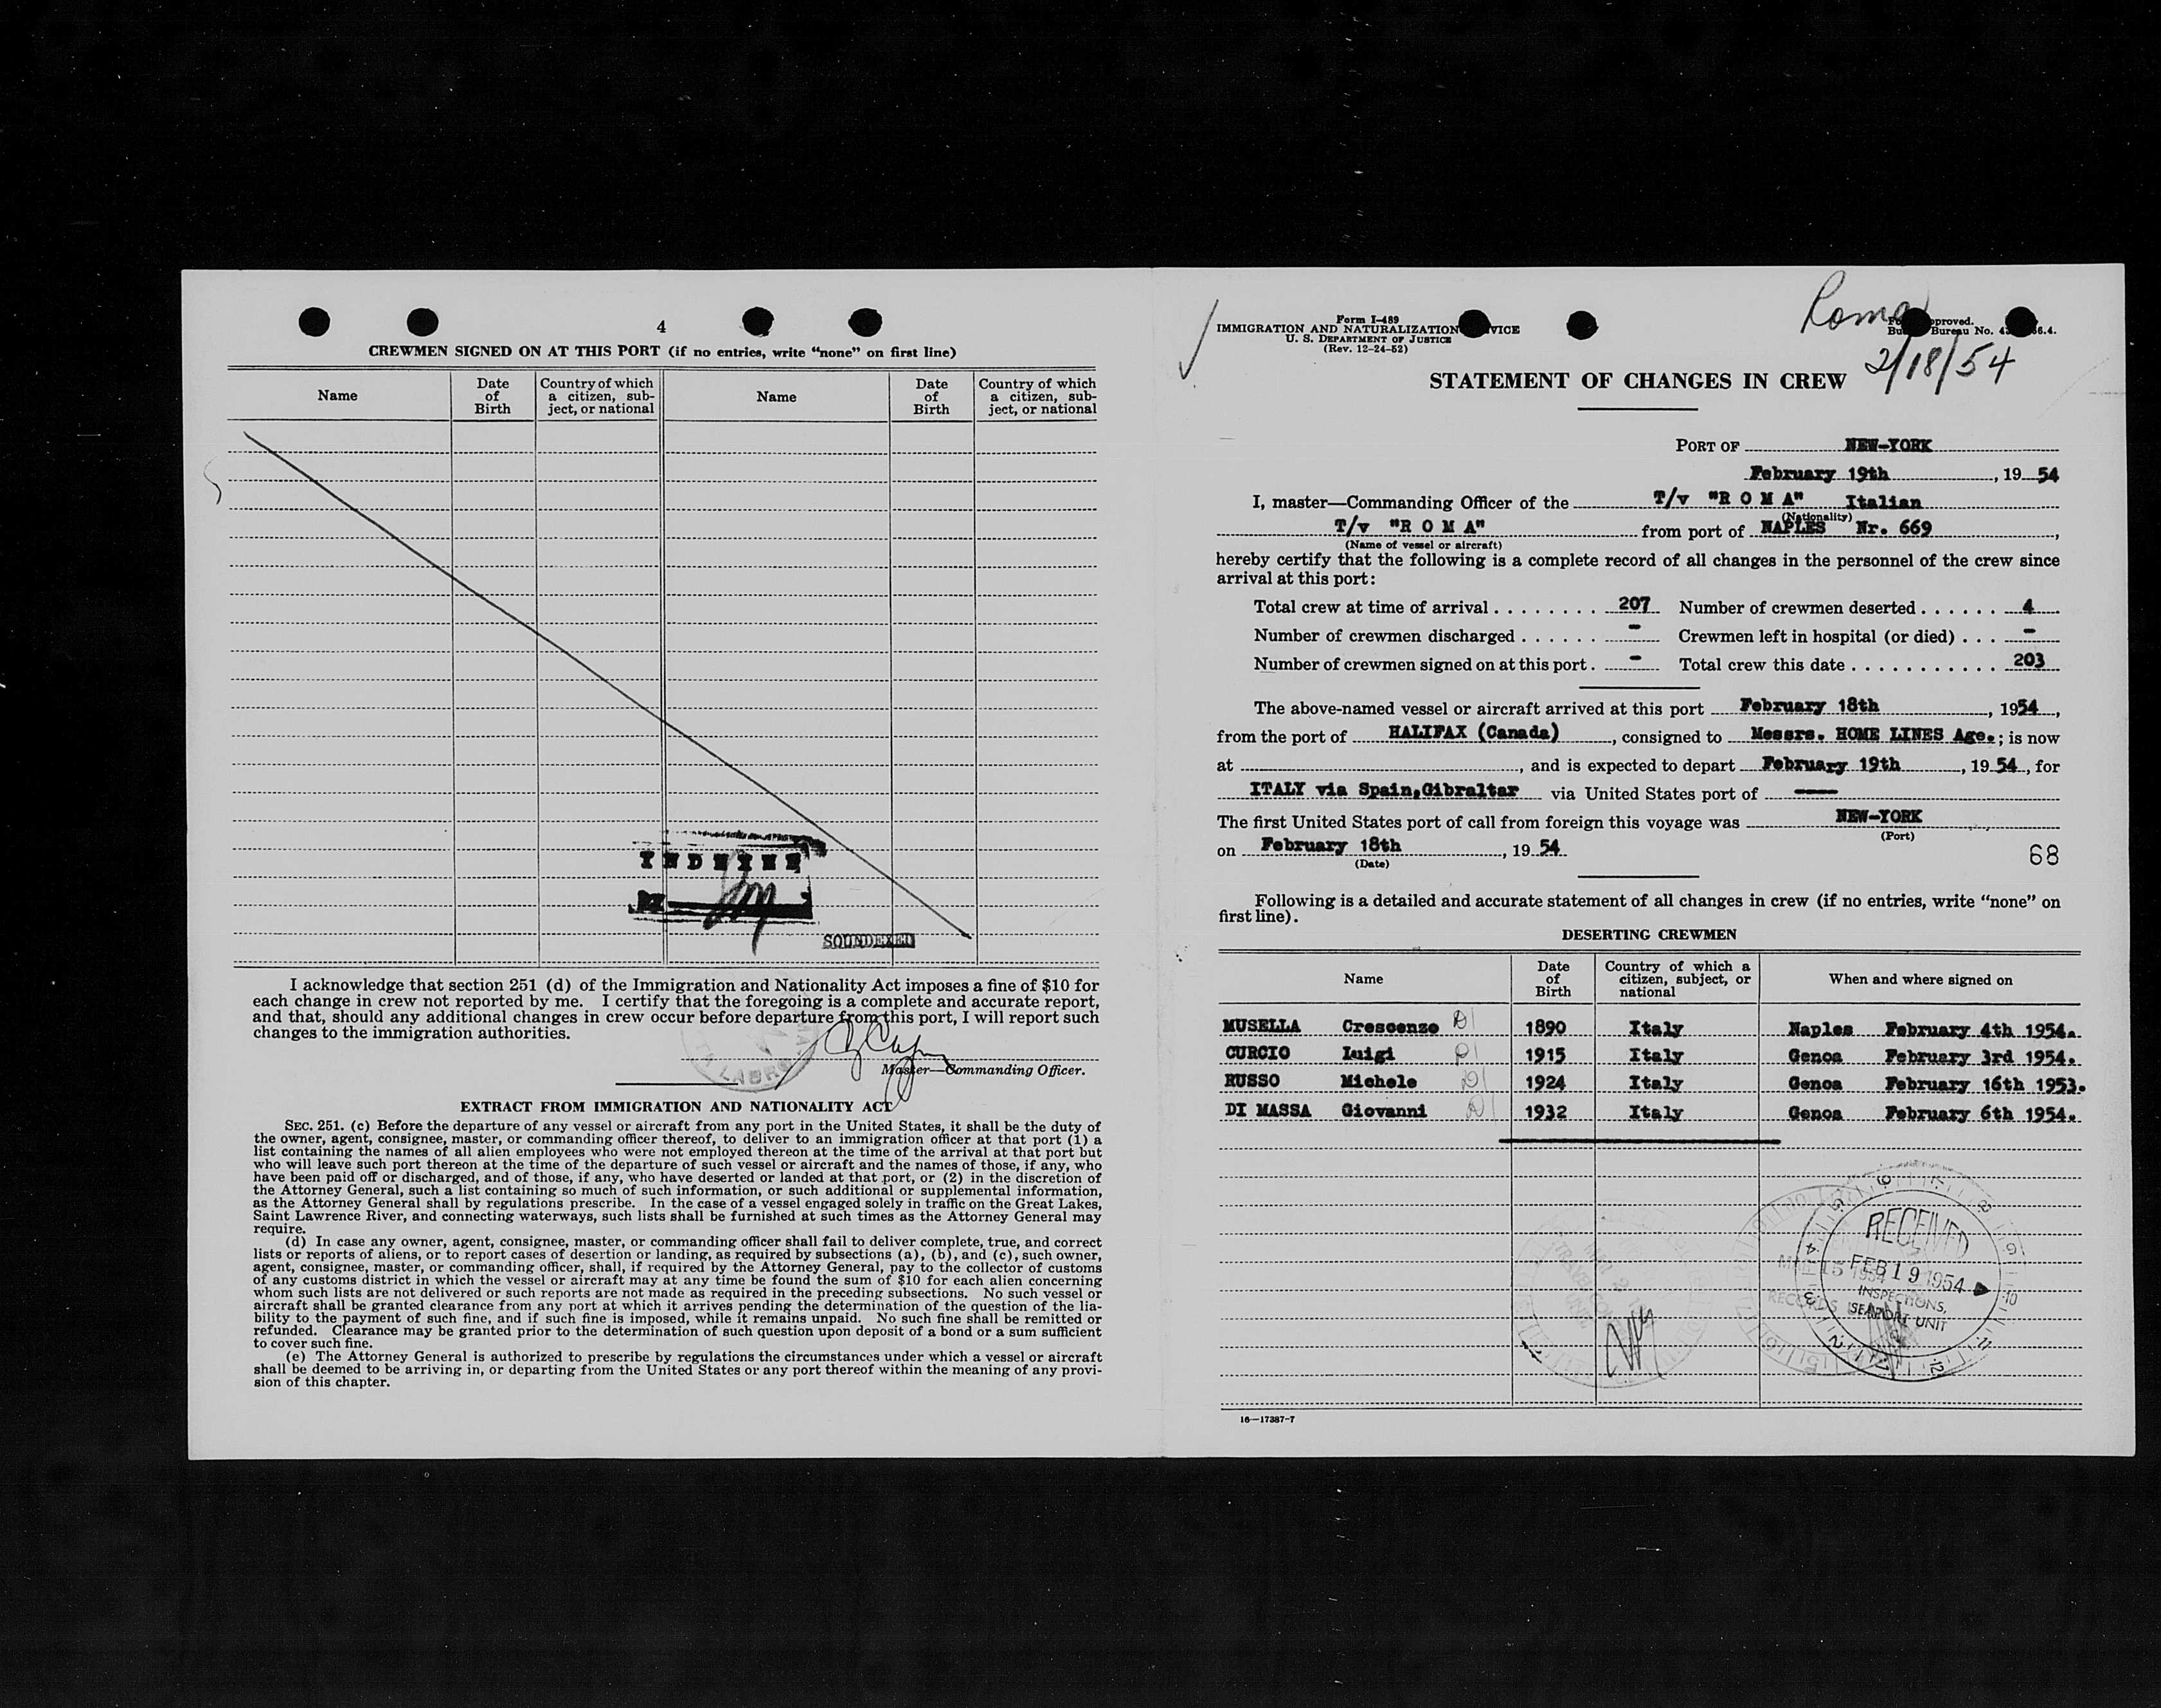 4
CREWMEN SIGNED ON AT THIS PORT (if no entries, write “none” on first line)
Name
Date of Birth
Country of which a citizen, sub-ject, or national
Name
Date of Birth
Country of which a citizen, sub-ject, or national
SOUNDEXED
I acknowledge that section 251 (d) of the Immigration and Nationality Act imposes a fine of $10 for
each change in crew not reported by me. I certify that the foregoing is a complete and accurate report,
and that, should any additional changes in crew occur before departure from this port, I will report such
changes to the immigration authorities.
Master—Commanding Officer.
EXTRACT FROM IMMIGRATION AND NATIONALITY ACT
SEC. 251. (c) Before the departure of any vessel or aircraft from any port in the United States, it shall be the duty of
the owner, agent, consignee, master, or commanding officer thereof, to deliver to an immigration officer at that port (1) a
list containing the names of all alien employees who were not employed thereon at the time of the arrival at that port but
who will leave such port thereon at the time of the departure of such vessel or aircraft and the names of those, if any, who
have been paid off or discharged, and of those, if any, who have deserted or landed at that port, or (2) in the discretion of
the Attorney General, such a list containing so much of such information, or such additional or supplemental information,
as the Attorney General shall by regulations prescribe. In the case of a vessel engaged solely in traffic on the Great Lakes,
Saint Lawrence River, and connecting waterways, such lists shall be furnished at such times as the Attorney General may
require.
(d) In case any owner, agent, consignee, master, or commanding officer shall fail to deliver complete, true, and correct
lists or reports of aliens, or to report cases of desertion or landing, as required by subsections (a), (b), and (c), such owner,
agent, consignee, master, or commanding officer, shall, if required by the Attorney General, pay to the collector of customs
of any customs district in which the vessel or aircraft may at any time be found the sum of $10 for each alien concerning
whom such lists are not delivered or such reports are not made as required in the preceding subsections. No such vessel or
aircraft shall be granted clearance from any port at which it arrives pending the determination of the question of the lia-
bility to the payment of such fine, and if such fine is imposed, while it remains unpaid. No such fine shall be remitted or
refunded. Clearance may be granted prior to the determination of such question upon deposit of a bond or a sum sufficient
to cover such fine.
(e) The Attorney General is authorized to prescribe by regulations the circumstances under which a vessel or aircraft
shall be deemed to be arriving in, or departing from the United States or any port thereof within the meaning of any provi-
sion of this chapter.
Form I-489
IMMIGRATION AND NATURALIZATION VICE
U. S. DEPARTMENT OF JUSTICE
(Rev. 12-24-52)
Roma
proved.
Bureau No. 4 6.4.
2/18/54
STATEMENT OF CHANGES IN CREW
PORT OF NEW-YORK
February 19th, 19 54
I, master—Commanding Officer of the T/v "R O M A" Italian
(Nationality)
T/v "R O M A" from port of NAPLES Nr. 669,
(Name of vessel or aircraft)
hereby certify that the following is a complete record of all changes in the personnel of the crew since
arrival at this port:
Total crew at time of arrival . . . . . . . . 207 Number of crewmen deserted . . . . . . 4
Number of crewmen discharged . . . . . . - Crewmen left in hospital (or died) . . . -
Number of crewmen signed on at this port . - Total crew this date . . . . . . . . . . . 203
The above-named vessel or aircraft arrived at this port February 18th, 1954,
from the port of HALIFAX (Canada), consigned to Messrs. HOME LINES Age.; is now
at , and is expected to depart February 19th, 19 54, for
ITALY via Spain,Gibraltar via United States port of ----
The first United States port of call from foreign this voyage was NEW-YORK
(Port)
on February 18th, 19 54
(Date)
68
Following is a detailed and accurate statement of all changes in crew (if no entries, write “none” on
first line).
DESERTING CREWMEN
Name
Date of Birth
Country of which a citizen, subject, or national
When and where signed on
MUSELLA Crescenzo 1890 Italy Naples February 4th 1954.
CURCIO Luigi 1915 Italy Genoa February 3rd 1954.
RUSSO Michele 1924 Italy Genoa February 16th 1953.
DI MASSA Giovanni 1932 Italy Genoa February 6th 1954.
RECEIVED
FEB 19 1954
INSPECTIONS,
SEAPORT UNIT
16—17387-7